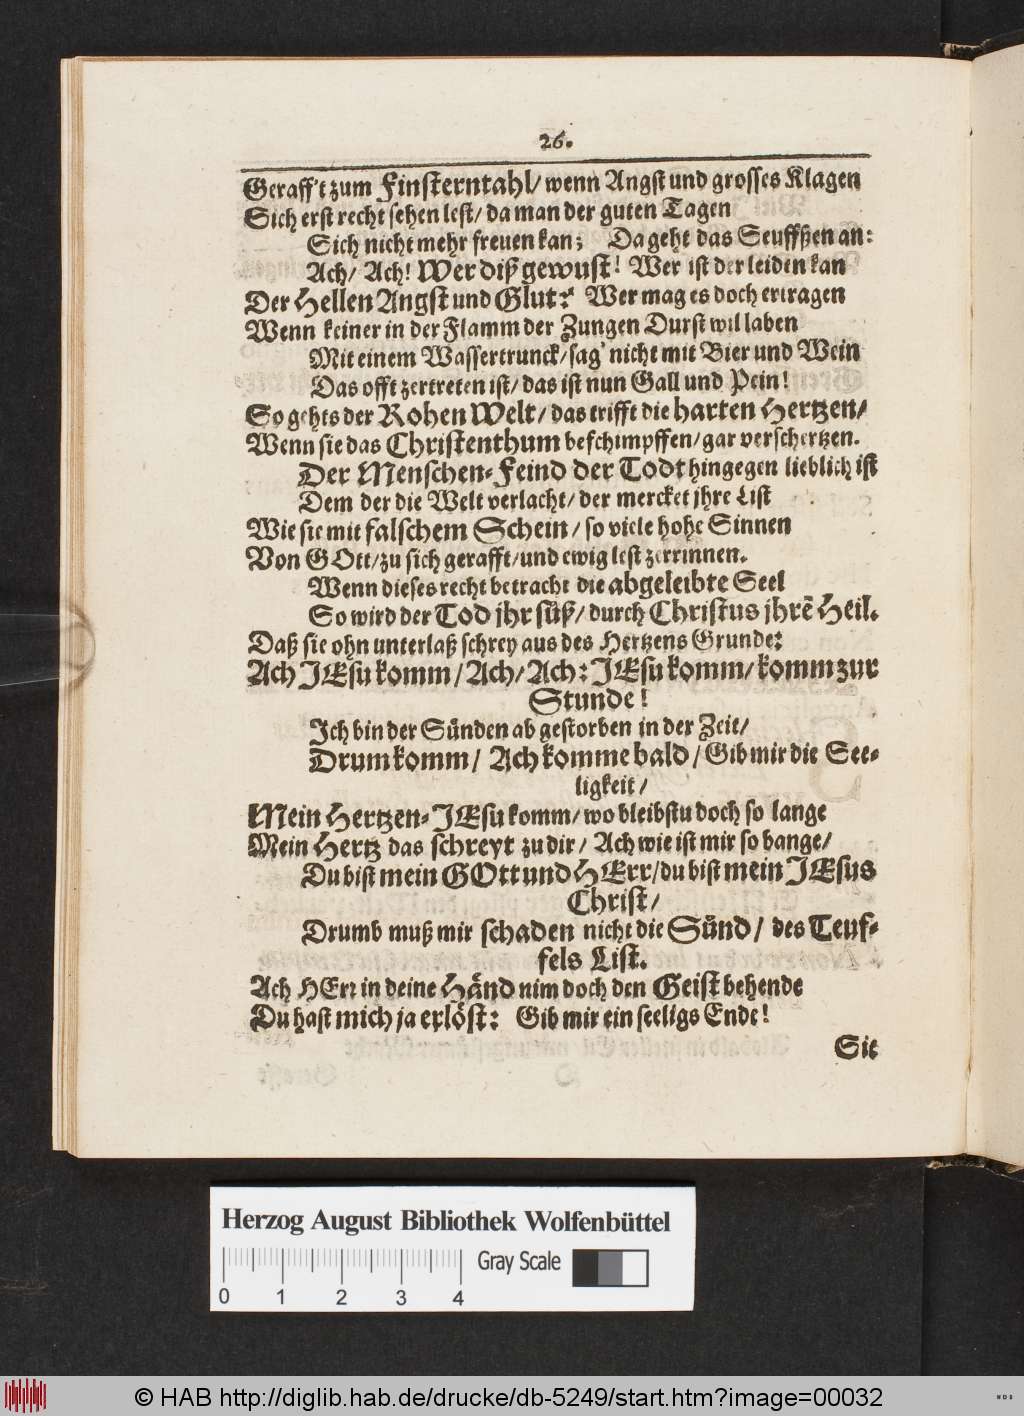 26.
Geraff't zum Finsterntahl/ wenn Angst und grosses Klagen
Sich erst recht sehen lest/ da man der guten Tagen
Sich nicht mehr freuen kan; Da geht das Seuffßen an:
Ach/ Ach! Wer diß gewust! Wer ist der leiden kan
Der Hellen Angst und Glut? Wer mag es doch ertragen
Wenn keiner in der Flamm der Zungen Durst wil laben
Mit einem Wassertrunck/ sag' nicht mit Bier und Wein
Das offt zertreten ist/ das ist nun Gall und Pein!
So gehts der Rohen Welt/ das trifft die harten Hertzen/
Wenn sie das Christenthum beschimpffen/ gar verschertzen.
Der Menschen-Feind der Todt hingegen lieblich ist
Dem der die Welt verlacht/ der mercket jhre List
Wie sie mit falschem Schein/ so viele hohe Sinnen
Von GOtt/ zu sich gerafft/ und ewig lest zerrinnen.
Wenn dieses recht betracht die abgeleibte Seel
So wird der Tod jhr süß/ durch Christus jhrē Heil.
Daß sie ohn unterlaß schrey aus des Hertzens Grunde:
Ach JEsu komm/ Ach/ Ach: JEsu komm/ komm zur
Stunde!
Ich bin der Sünden abgestorben in der Zeit/
Drum komm/ Ach komme bald/ Gib mir die See-
ligkeit/
Mein Hertzen-JEsu komm/ wo bleibstu doch so lange
Mein Hertz das schreyt zu dir/ Ach wie ist mir so bange/
Du bist mein GOtt und HErr/ du bist mein JEsus
Christ/
Drumb muß mir schaden nicht die Sünd/ des Teuf-
fels List.
Ach HErr in deine Händ nim doch den Geist behende
Du hast mich ja erlöst: Gib mir ein seeligs Ende!
Sie
Herzog August Bibliothek Wolfenbüttel
Gray Scale
0 1 2 3 4
© HAB http://diglib.hab.de/drucke/db-5249/start.htm?image=00032